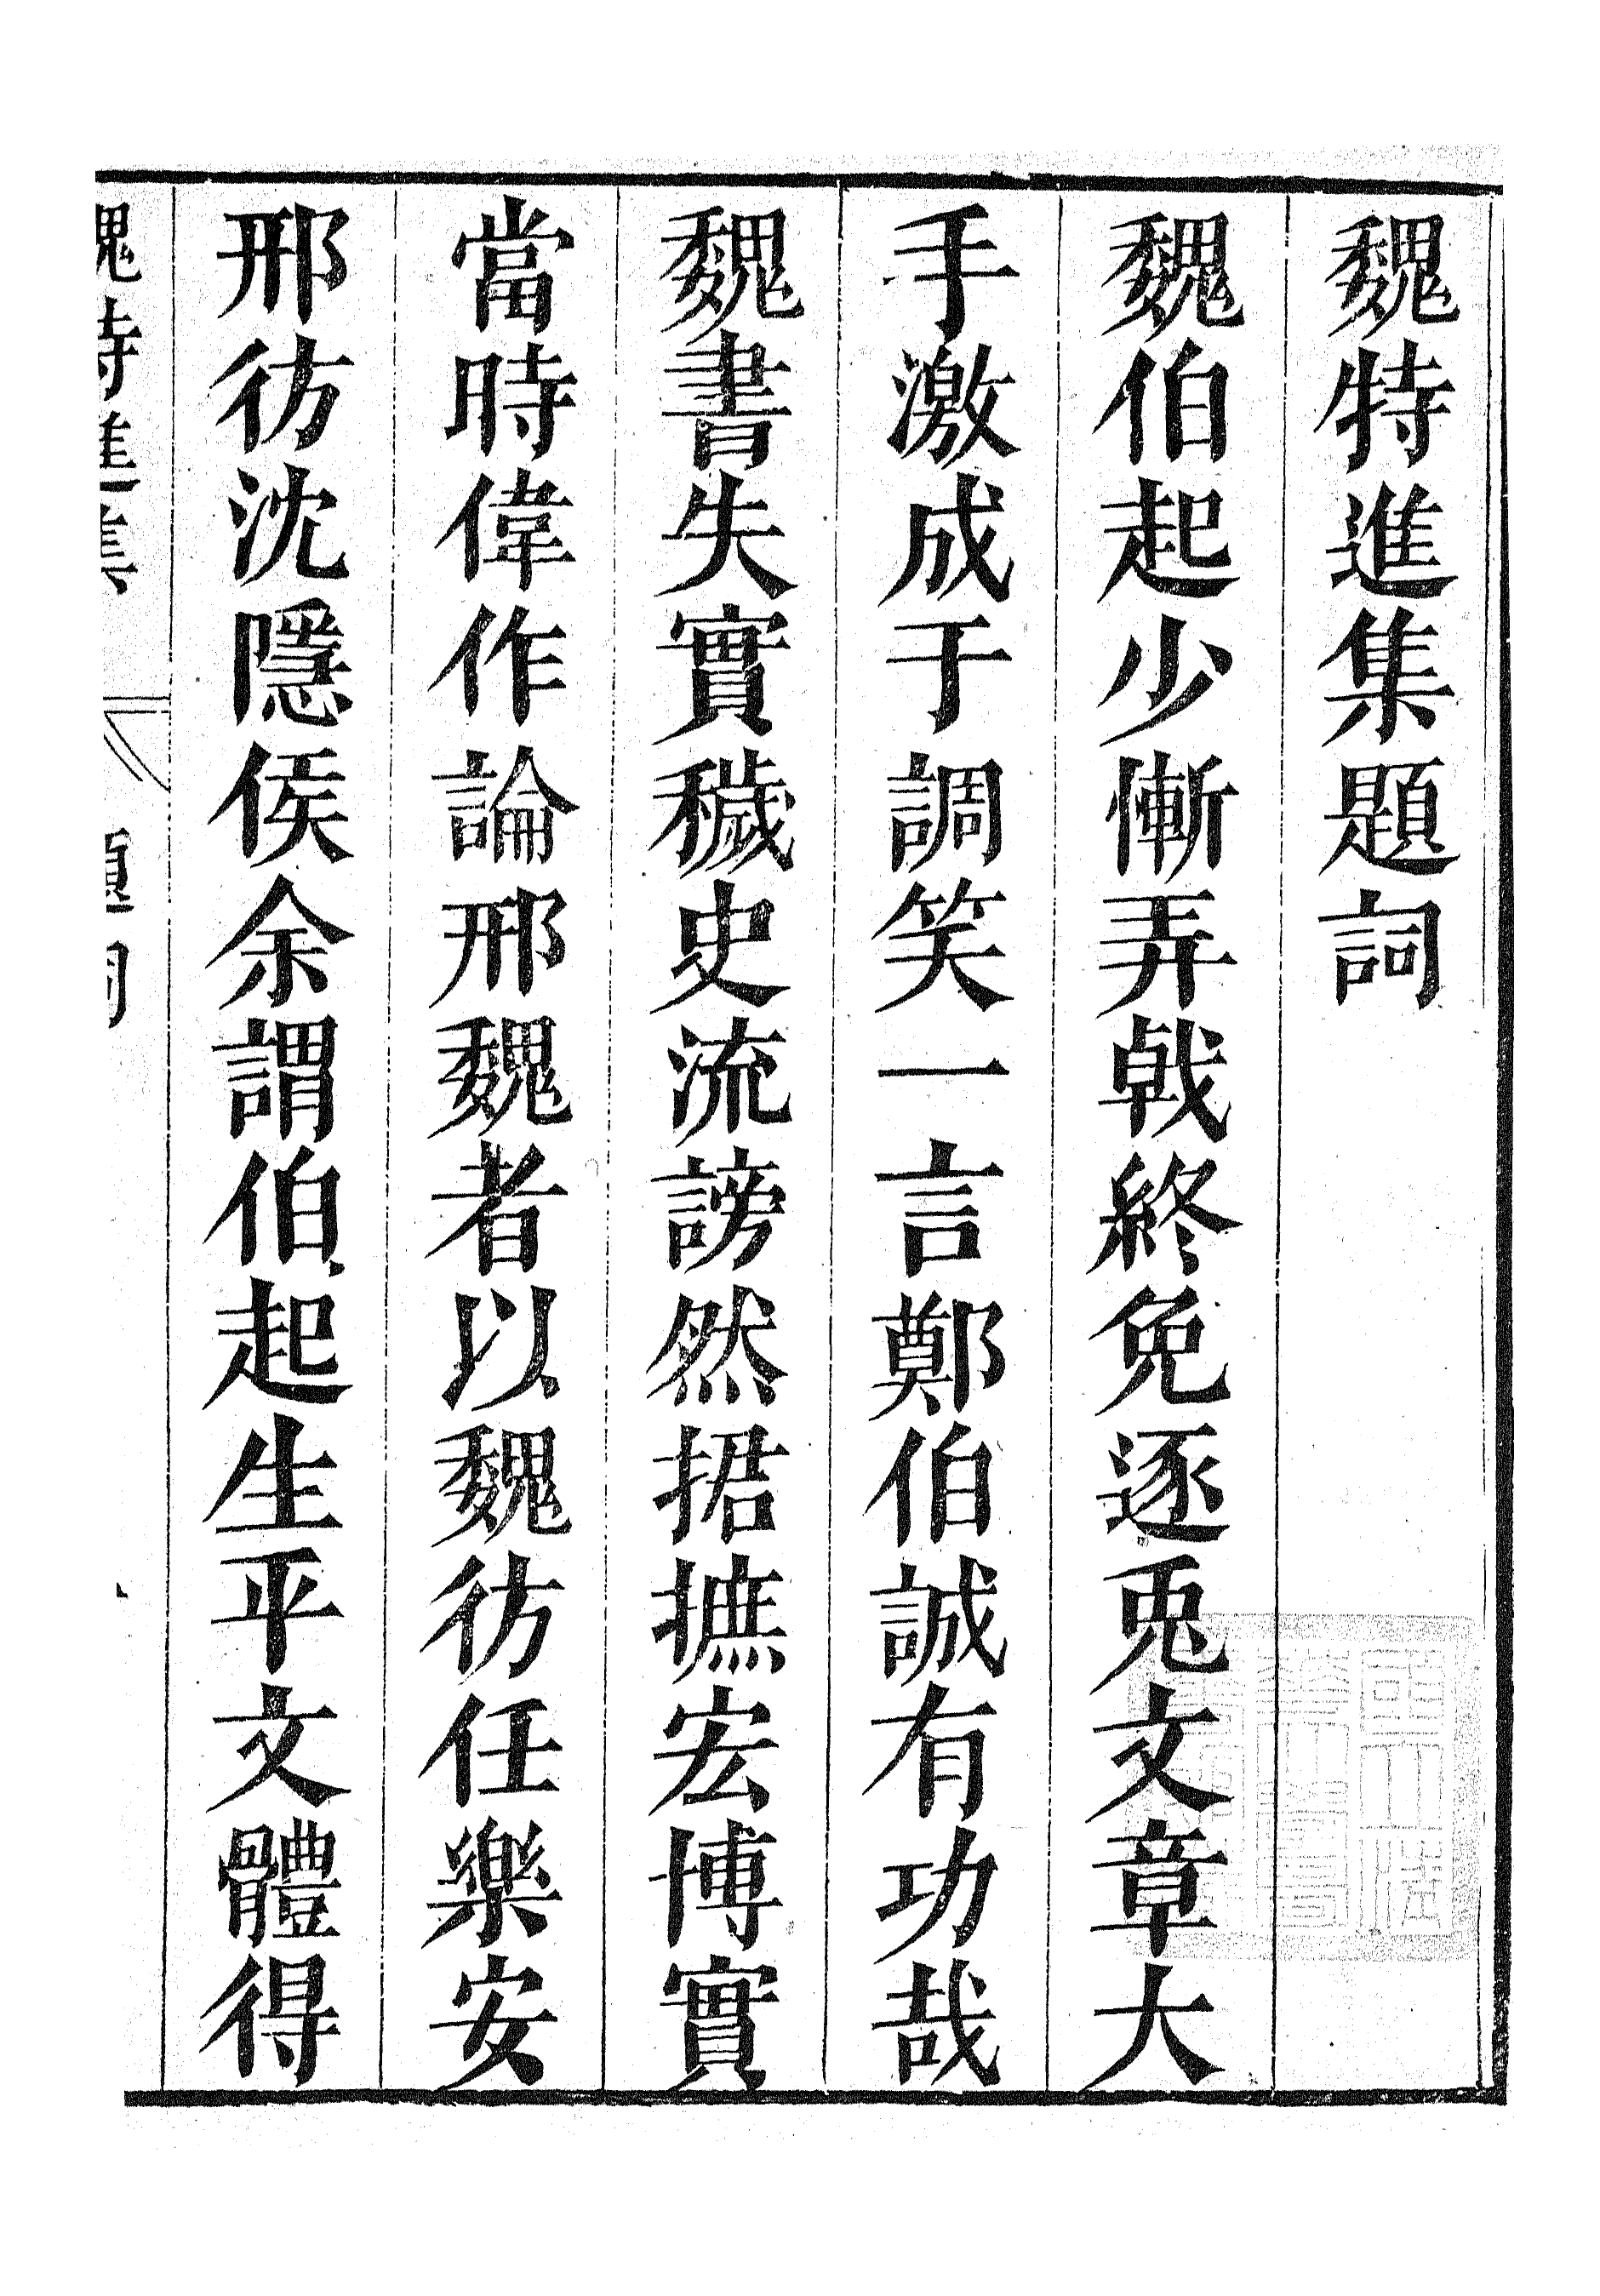 魏特進集題詞
魏伯起少慚弄戟終免逐兎文章大
手激成于調笑一言鄭伯誠有功哉
魏書失實穢史流謗然捃摭宏博實
當時偉作論邢魏者以魏彷任樂安
邢彷沈隱侯余謂伯起生平文體得
魏特進集
題詞